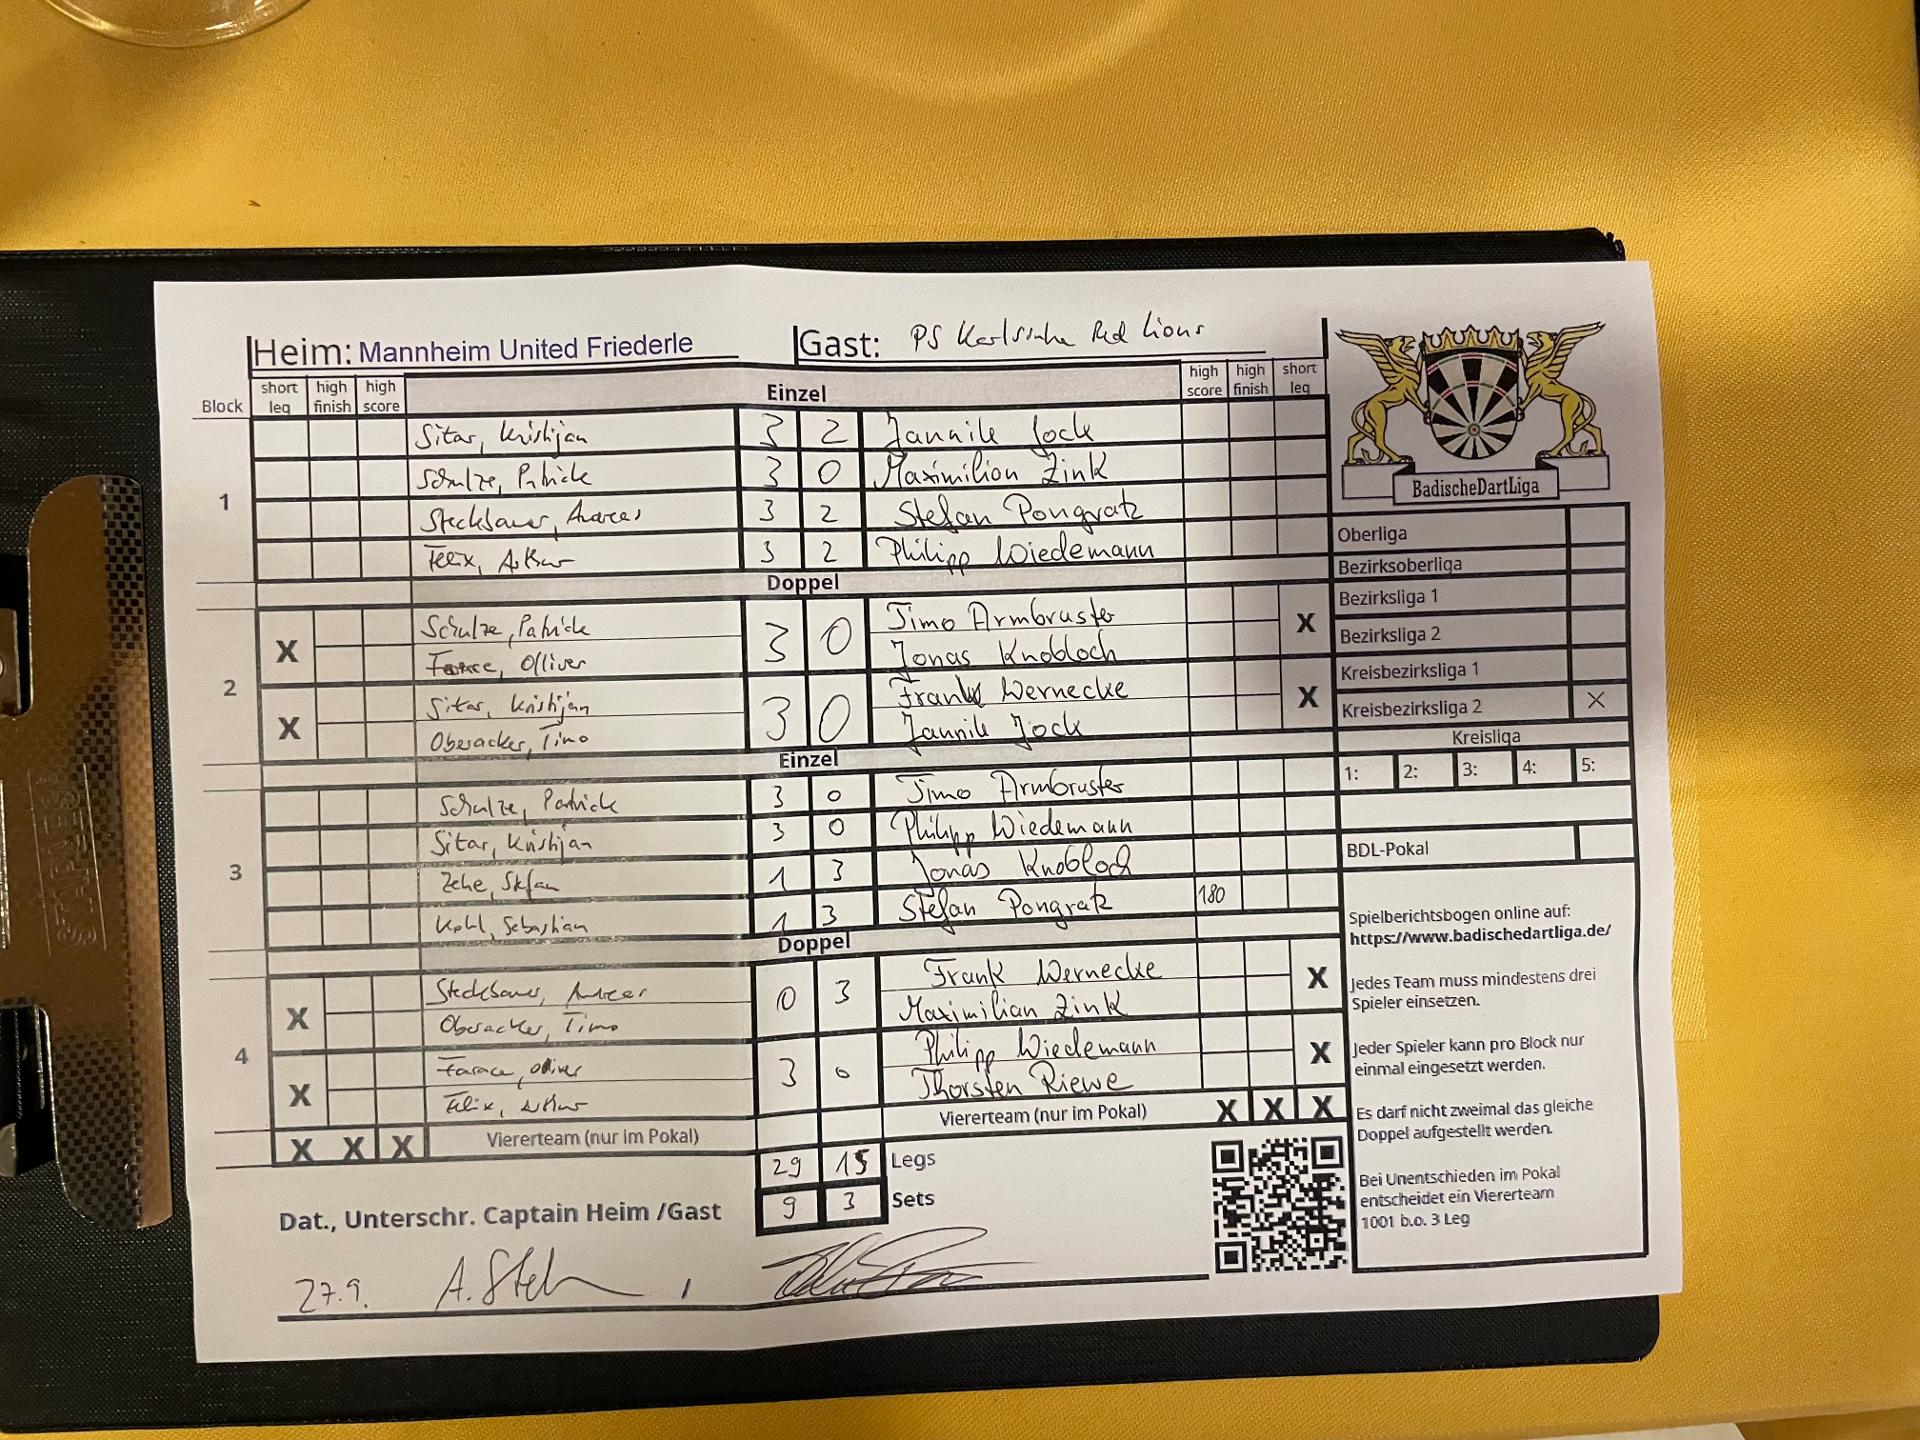 Heim: Mannheim United Friederle Gast: PS Karlsruhe Red Lions
Block short leg high finish high score Einzel high score high finish short leg
1
Sitar, Kristijan 3 2 Jannik Jock
Schulze, Patrick 3 0 Maximilian Zink
Steckbauer, Andreas 3 2 Stefan Pongratz
Felix, Arthur 3 2 Philipp Wiedemann
Doppel
2
X Schulze, Patrick 3 0 Timo Armbruster X
Farace, Olliver Jonas Knobloch
X Sitar, Kristijan 3 0 Frank Wernecke X
Oberacker, Timo Jannik Jock
Einzel
3
Schulze, Patrick 3 0 Timo Armbruster
Sitar, Kristijan 3 0 Philipp Wiedemann
Zehe, Stefan 1 3 Jonas Knobloch
Kohl, Sebastian 1 3 Stefan Pongratz 180
Doppel
4
X Steckbauer, Andreas 0 3 Frank Wernecke X
Oberacker, Timo Maximilian Zink
X Farace, Oliver 3 0 Philipp Wiedemann X
Felix, Arthur Thorsten Riewe
X X X Viererteam (nur im Pokal) Viererteam (nur im Pokal) X X X
29 15 Legs
9 3 Sets
Dat., Unterschr. Captain Heim /Gast
27.9. A. Ste
BadischeDartLiga
Oberliga
Bezirksoberliga
Bezirksliga 1
Bezirksliga 2
Kreisbezirksliga 1
Kreisbezirksliga 2 X
Kreisliga
1: 2: 3: 4: 5:
BDL-Pokal
Spielberichtsbogen online auf:
https://www.badischedartliga.de/
Jedes Team muss mindestens drei
Spieler einsetzen.
Jeder Spieler kann pro Block nur
einmal eingesetzt werden.
Es darf nicht zweimal das gleiche
Doppel aufgestellt werden.
Bei Unentschieden im Pokal
entscheidet ein Viererteam
1001 b.o. 3 Leg